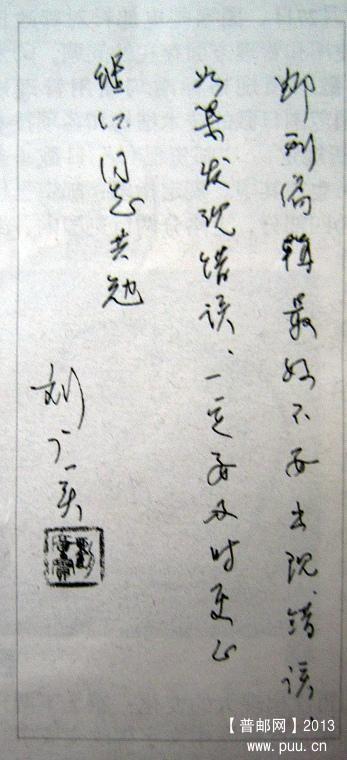 邮刊编辑最好不要出现错误，
如果发现错误，一定要及时更正
继江同志共勉
刘广实
【普邮网】2013
www.puu.cn